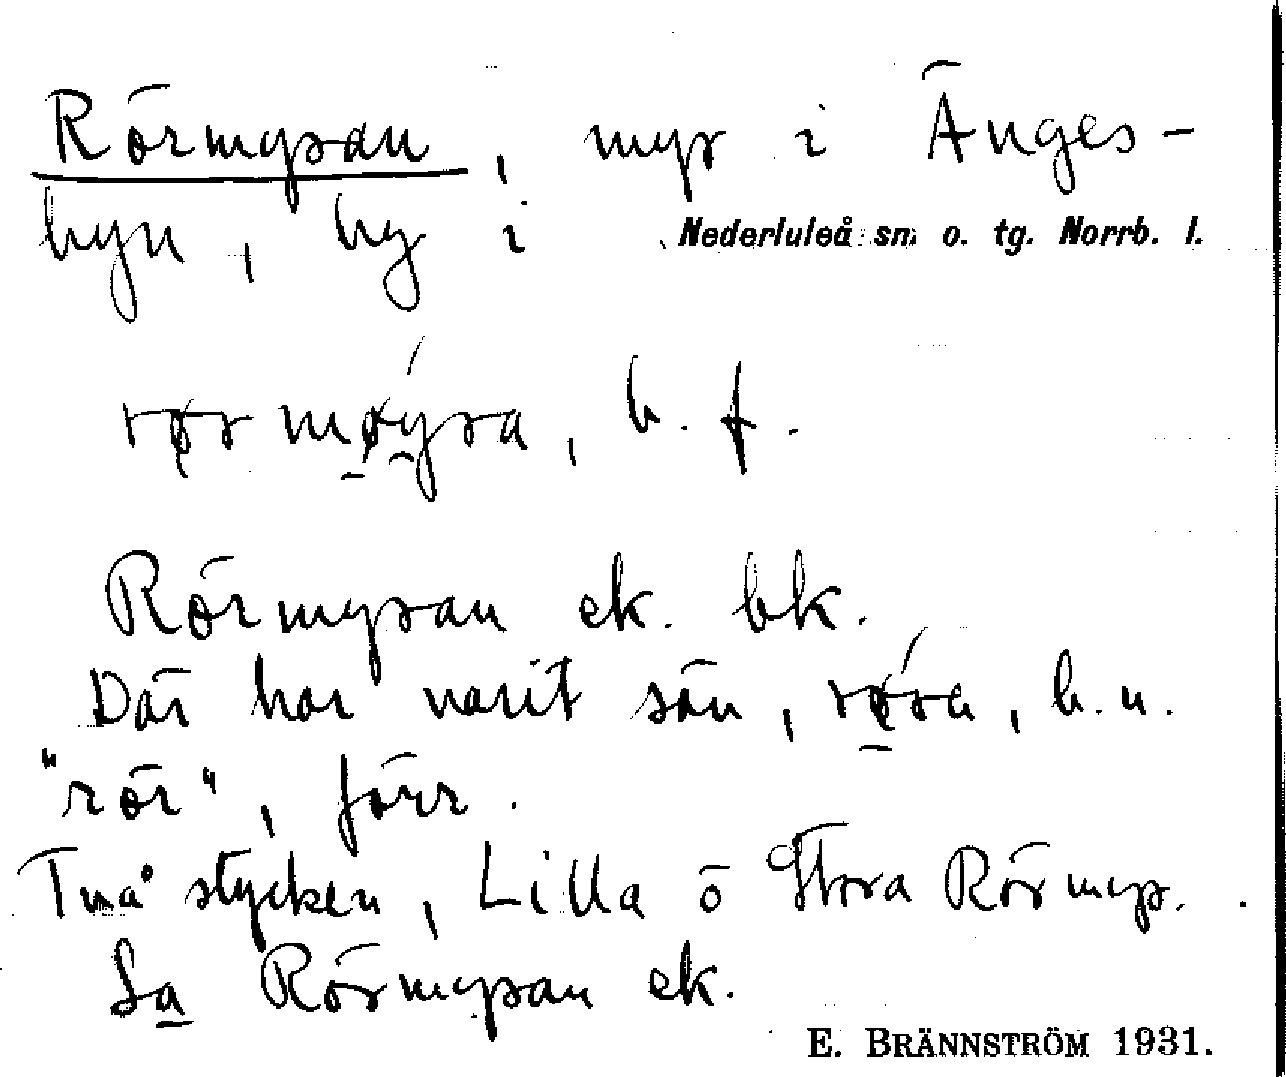 Rörmyran, myr i Änges-
byn, by i Nederluleå sn o. tg. Norrb. l.
rørmøyra, b. f.
Rörmyran ek. bk.
Där har varit sån, røra, b. n.
"rör", förr.
Två stycken, Lilla o Stora Rörmyr.
Sa Rörmyran ek.
E. BRÄNNSTRÖM 1931.